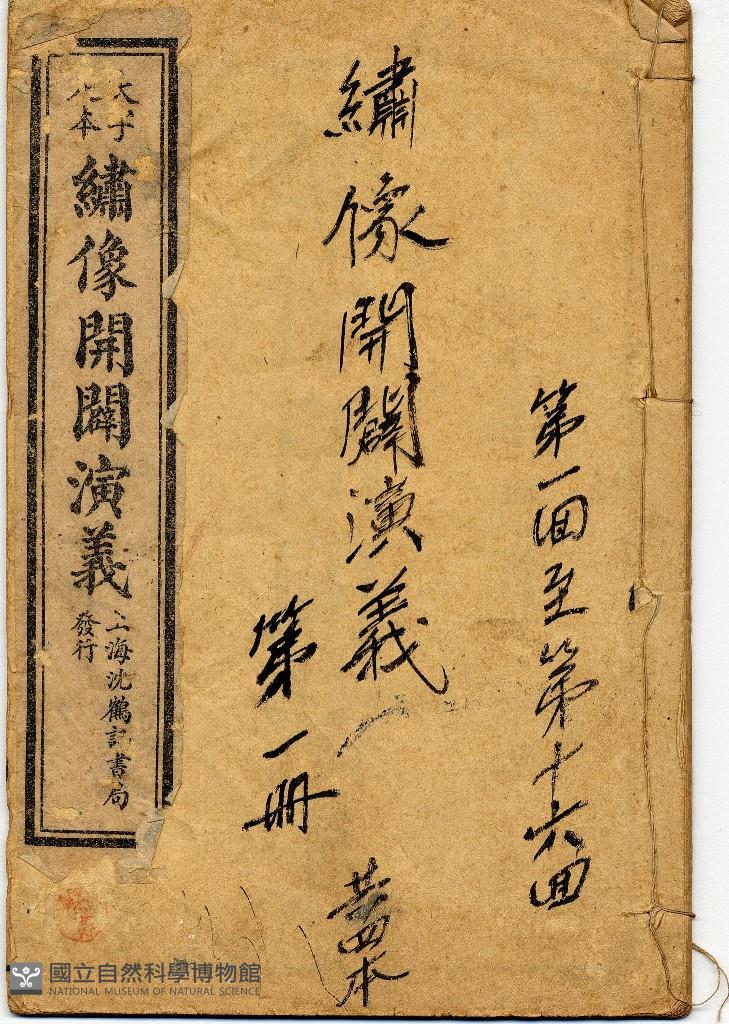 第一回至第十六回
繡像開闢演義
共四本
第一冊
大字
本
繡像開闢演義
上海沈鶴記書局
發行
國立自然科學博物館
NATIONAL MUSEUM OF NATURAL SCIENCE